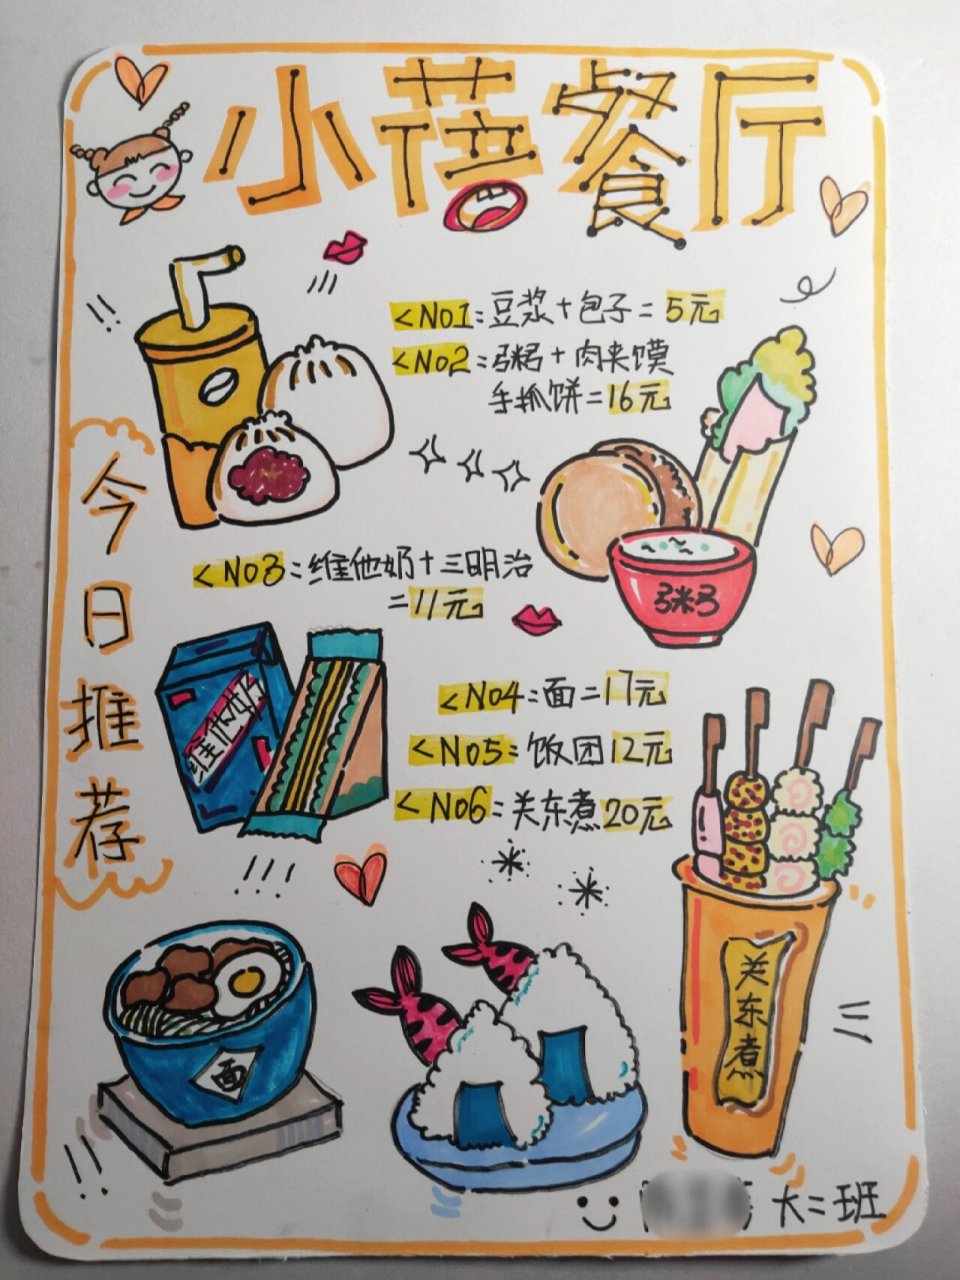 小蓓餐厅
<No1:豆浆+包子=5元
<No2:粥+肉夹馍
手抓饼=16元
今日推荐
<No3:维他奶+三明治
=11元
粥
维他奶
<No4:面=17元
<No5:饭团12元
<No6:关东煮20元
关东煮
面
大二班